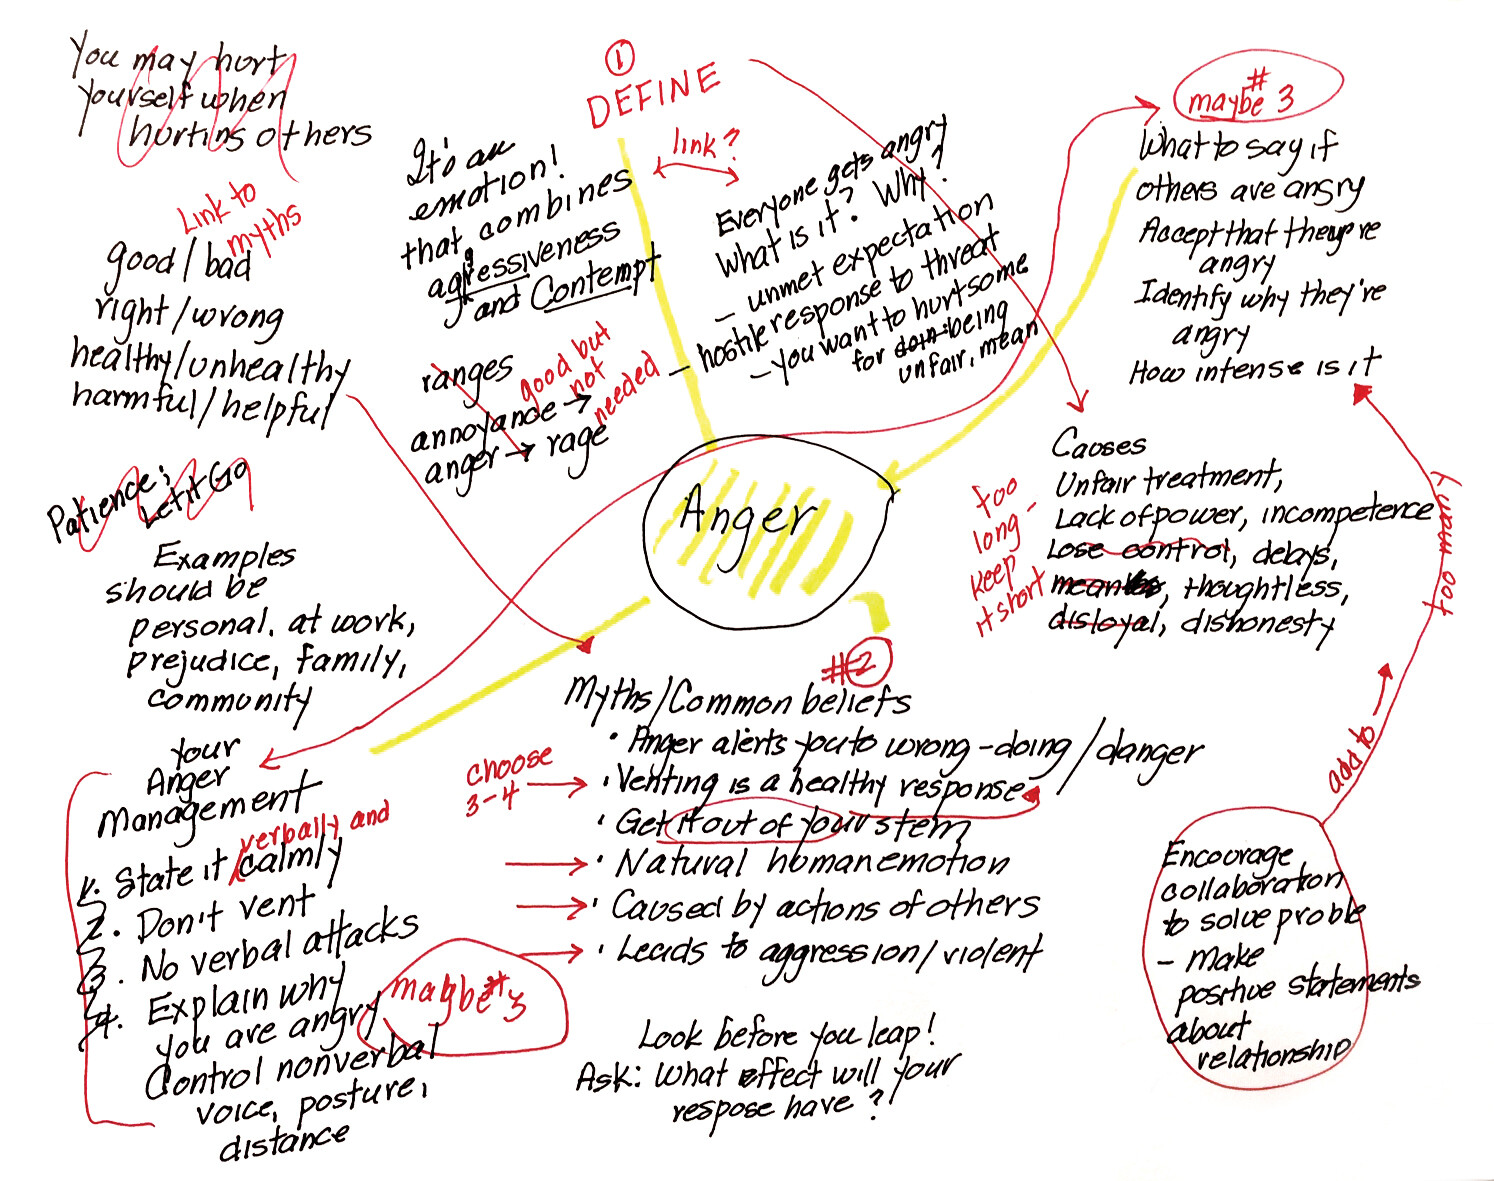 You may hurt
yourself when
hurting others
Link to
myths
good / bad
right / wrong
healthy/unhealthy
harmful/helpful
①
DEFINE
link?
It's an
emotion!
that combines
aggressiveness
and Contempt
ranges
annoyance →
anger → rage
good but
not
needed
Everyone gets angry
What is it? Why?
- unmet expectation
- hostile response to threat
- you want to hurt some
for being
unfair, mean
maybe #3
What to say if
others are angry
Accept that they're
angry
Identify why they're
angry
How intense is it
Patience;
Let it Go
Examples
should be
personal. at work,
prejudice, family,
community
Anger
too
long -
keep
it short
Causes
Unfair treatment,
Lack of power, incompetence
Lose control, delays,
mean, thoughtless,
disloyal, dishonesty
too many
add to
Your
Anger
Management
verbally and
1. State it calmly
2. Don't vent
3. No verbal attacks
4. Explain why
you are angry
Control nonverbal
voice, posture,
distance
maybe #3
#2
Myths/Common beliefs
• Anger alerts you to wrong-doing / danger
choose
3-4
• Venting is a healthy response
• Get it out of your stem
• Natural human emotion
• Caused by actions of others
• Leads to aggression/violent
Look before you leap!
Ask: What effect will your
respose have?
Encourage
collaboration
to solve proble
- make
positive statements
about
relationship